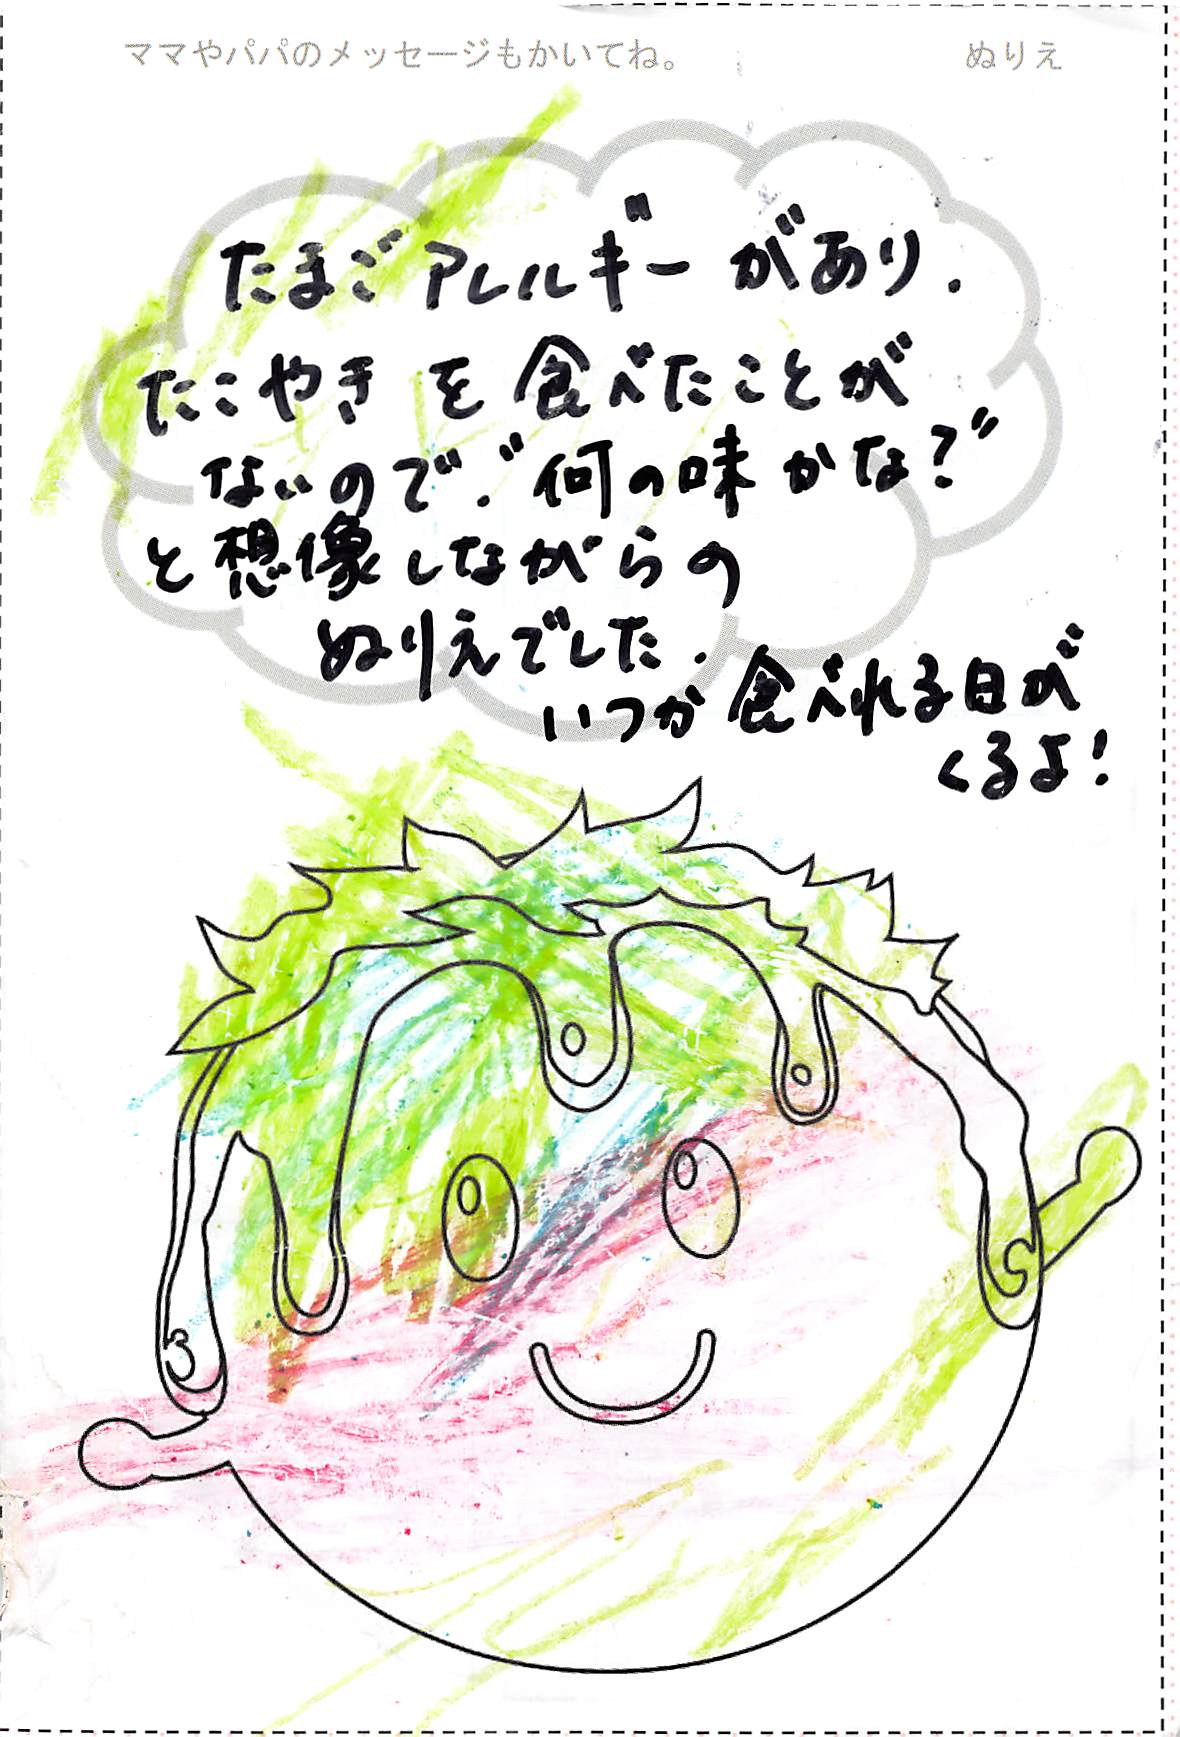 ママやパパのメッセージもかいてね。 ぬりえ
たまごアレルギーがあり.
たこやきを食べたことが
ないので."何の味かな?"
と想像しながらの
ぬりえでした.
いつか食べれる日が
くるよ!